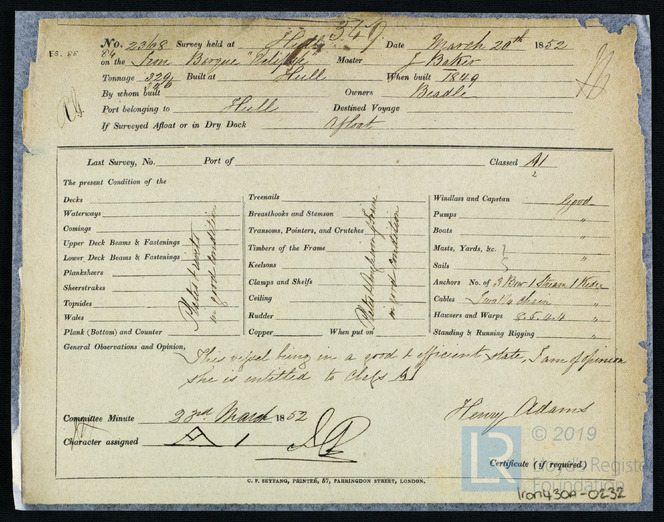 349
No. 2368 Survey held at Hull Date March 20th 1852
ES. 85
84 on the Iron Barque "Eclipse" Master J Baker
Tonnage 329 Built at Hull When built 1849
By whom built Owners Beadle
Port belonging to Hull Destined Voyage
If Surveyed Afloat or in Dry Dock Afloat
Last Survey, No. Port of Classed A1
The present Condition of the
Decks
Waterways
Comings
Upper Deck Beams & Fastenings
Lower Deck Beams & Fastenings
Planksheers
Sheerstrakes
Topsides
Wales
Plank (Bottom) and Counter
Plates & rivets
in good condition
Treenails
Breasthooks and Stemson
Transoms, Pointers, and Crutches
Timbers of the Frame
Keelsons
Clamps and Shelfs
Ceiling
Rudder
Copper When put on
in good condition
Windlass and Capstan Good
Pumps "
Boats "
Masts, Yards, &c. } "
Sails
Anchors No. of 3 Bow 1 Stream 1 Kedge
Cables Two chain "
Hawsers and Warps 8. 5. 4. 4 "
Standing & Running Rigging "
General Observations and Opinion, This vessel being in a good & efficient state, I am of opinion
she is entitled to Class A1
Henry Adams
Committee Minute 23rd March 1852
Character assigned A 1
Certificate (if required)
C. F. SEYFANG, PRINTER, 57, FARRINGDON STREET, LONDON.
LR © 2019
Lloyd's Register
Foundation
Iron430A-0232